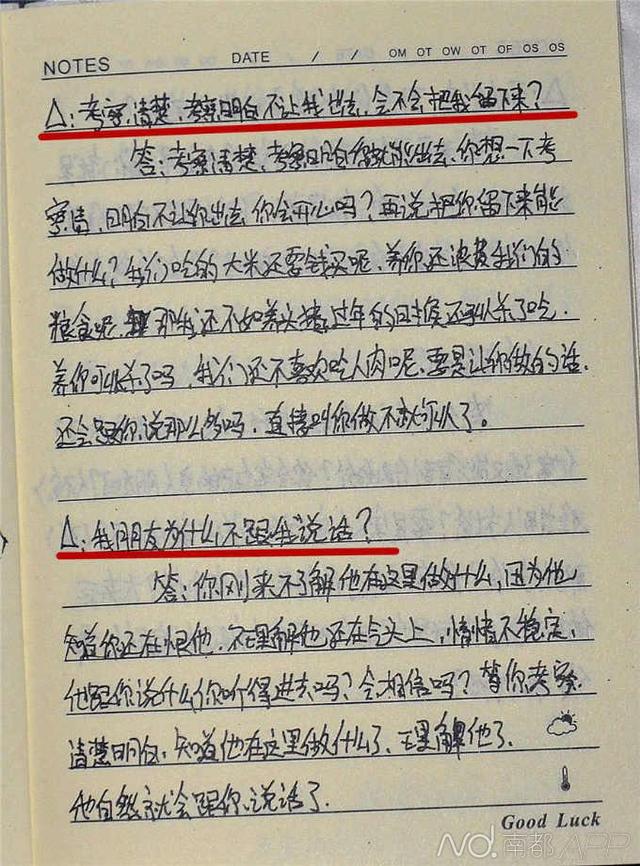 NOTES DATE / / OM OT OW OT OF OS OS
△:考察清楚、考察明白不让我出去,会不会把我留下来?
答:考察清楚、考察明白你就能出去,你想一下考
察清、明白不让你出去你会开心吗?再说把你留下来能
做什么?我们吃的大米还要钱买呢,养你还浪费我们的
粮食呢,那我还不如养头猪,过年的时候还可以杀了吃.
养你可以杀了吗,我们还不喜欢吃人肉呢,要是让你做的话.
还会跟你说那么多吗,直接叫你做不就可以了。
△:我朋友为什么不跟我说话?
答:你刚来不了解他在这里做什么,因为他
知道你还在恨他,不理解他还在气头上,情绪不稳定,
他跟你说什么你听得进去吗?会相信吗?等你考察
清楚明白,知道他在这里做什么了,理解他了.
他自然就会跟你说话了.
Good Luck
ND.南都APP